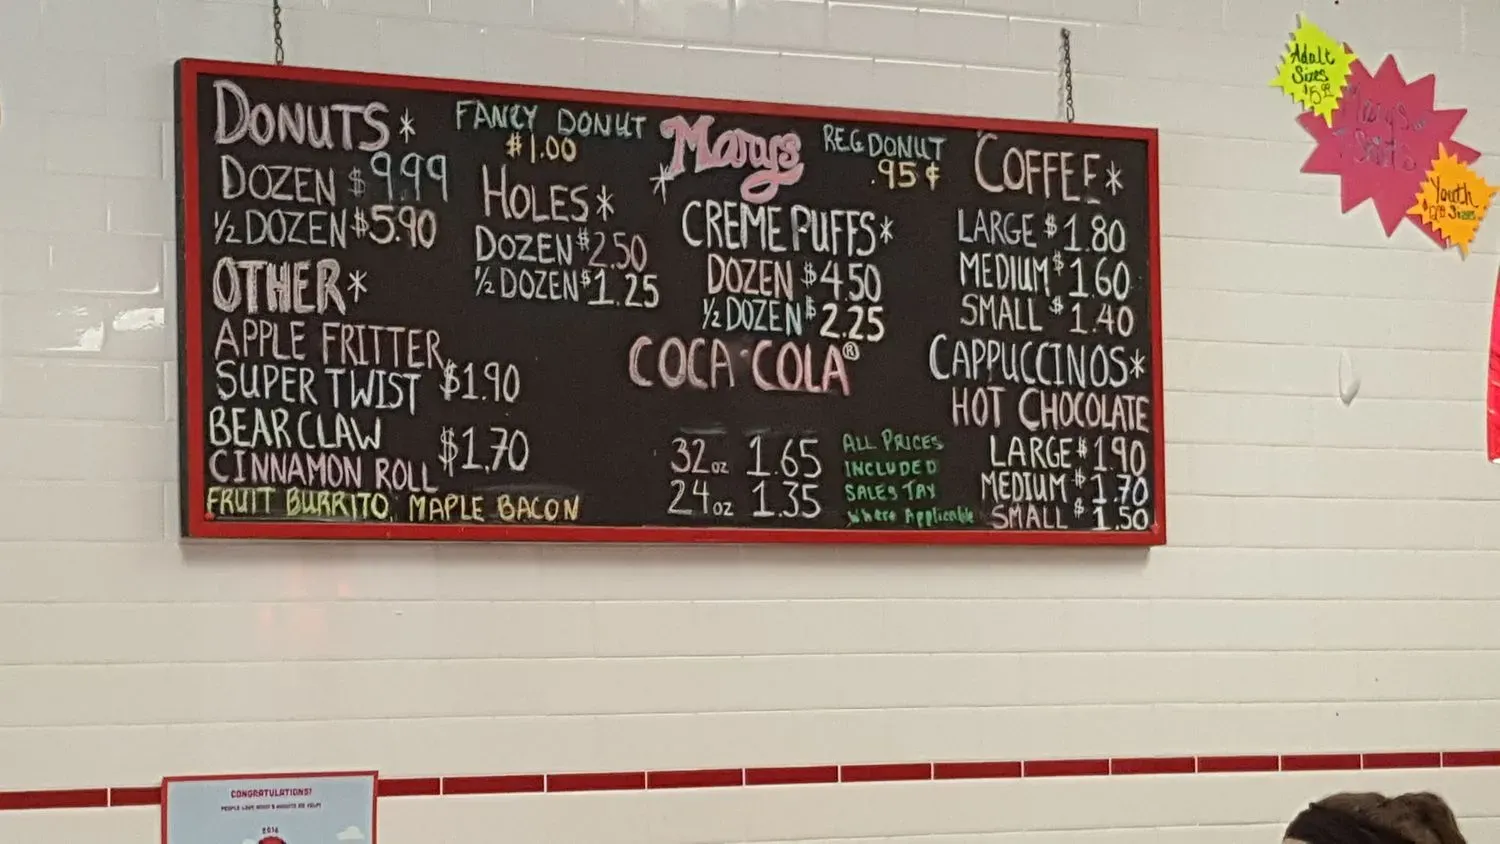 DONUTS*
DOZEN $9.99
½ DOZEN $5.90
OTHER*
APPLE FRITTER
SUPER TWIST $1.90
BEAR CLAW
CINNAMON ROLL $1.70
FRUIT BURRITO, MAPLE BACON
FANCY DONUT
$1.00
HOLES*
DOZEN $2.50
½ DOZEN $1.25
Marys
REG DONUT
.95¢
CREME PUFFS*
DOZEN $4.50
½ DOZEN $2.25
COCA-COLA®
32oz 1.65
24oz 1.35
ALL PRICES
INCLUDED
SALES TAX
Where Applicable
COFFEE*
LARGE $1.80
MEDIUM $1.60
SMALL $1.40
CAPPUCCINOS*
HOT CHOCOLATE
LARGE $1.90
MEDIUM $1.70
SMALL $1.50
Adult
Sizes
Marys
Shirts
Youth
Sizes
CONGRATULATIONS!
2016